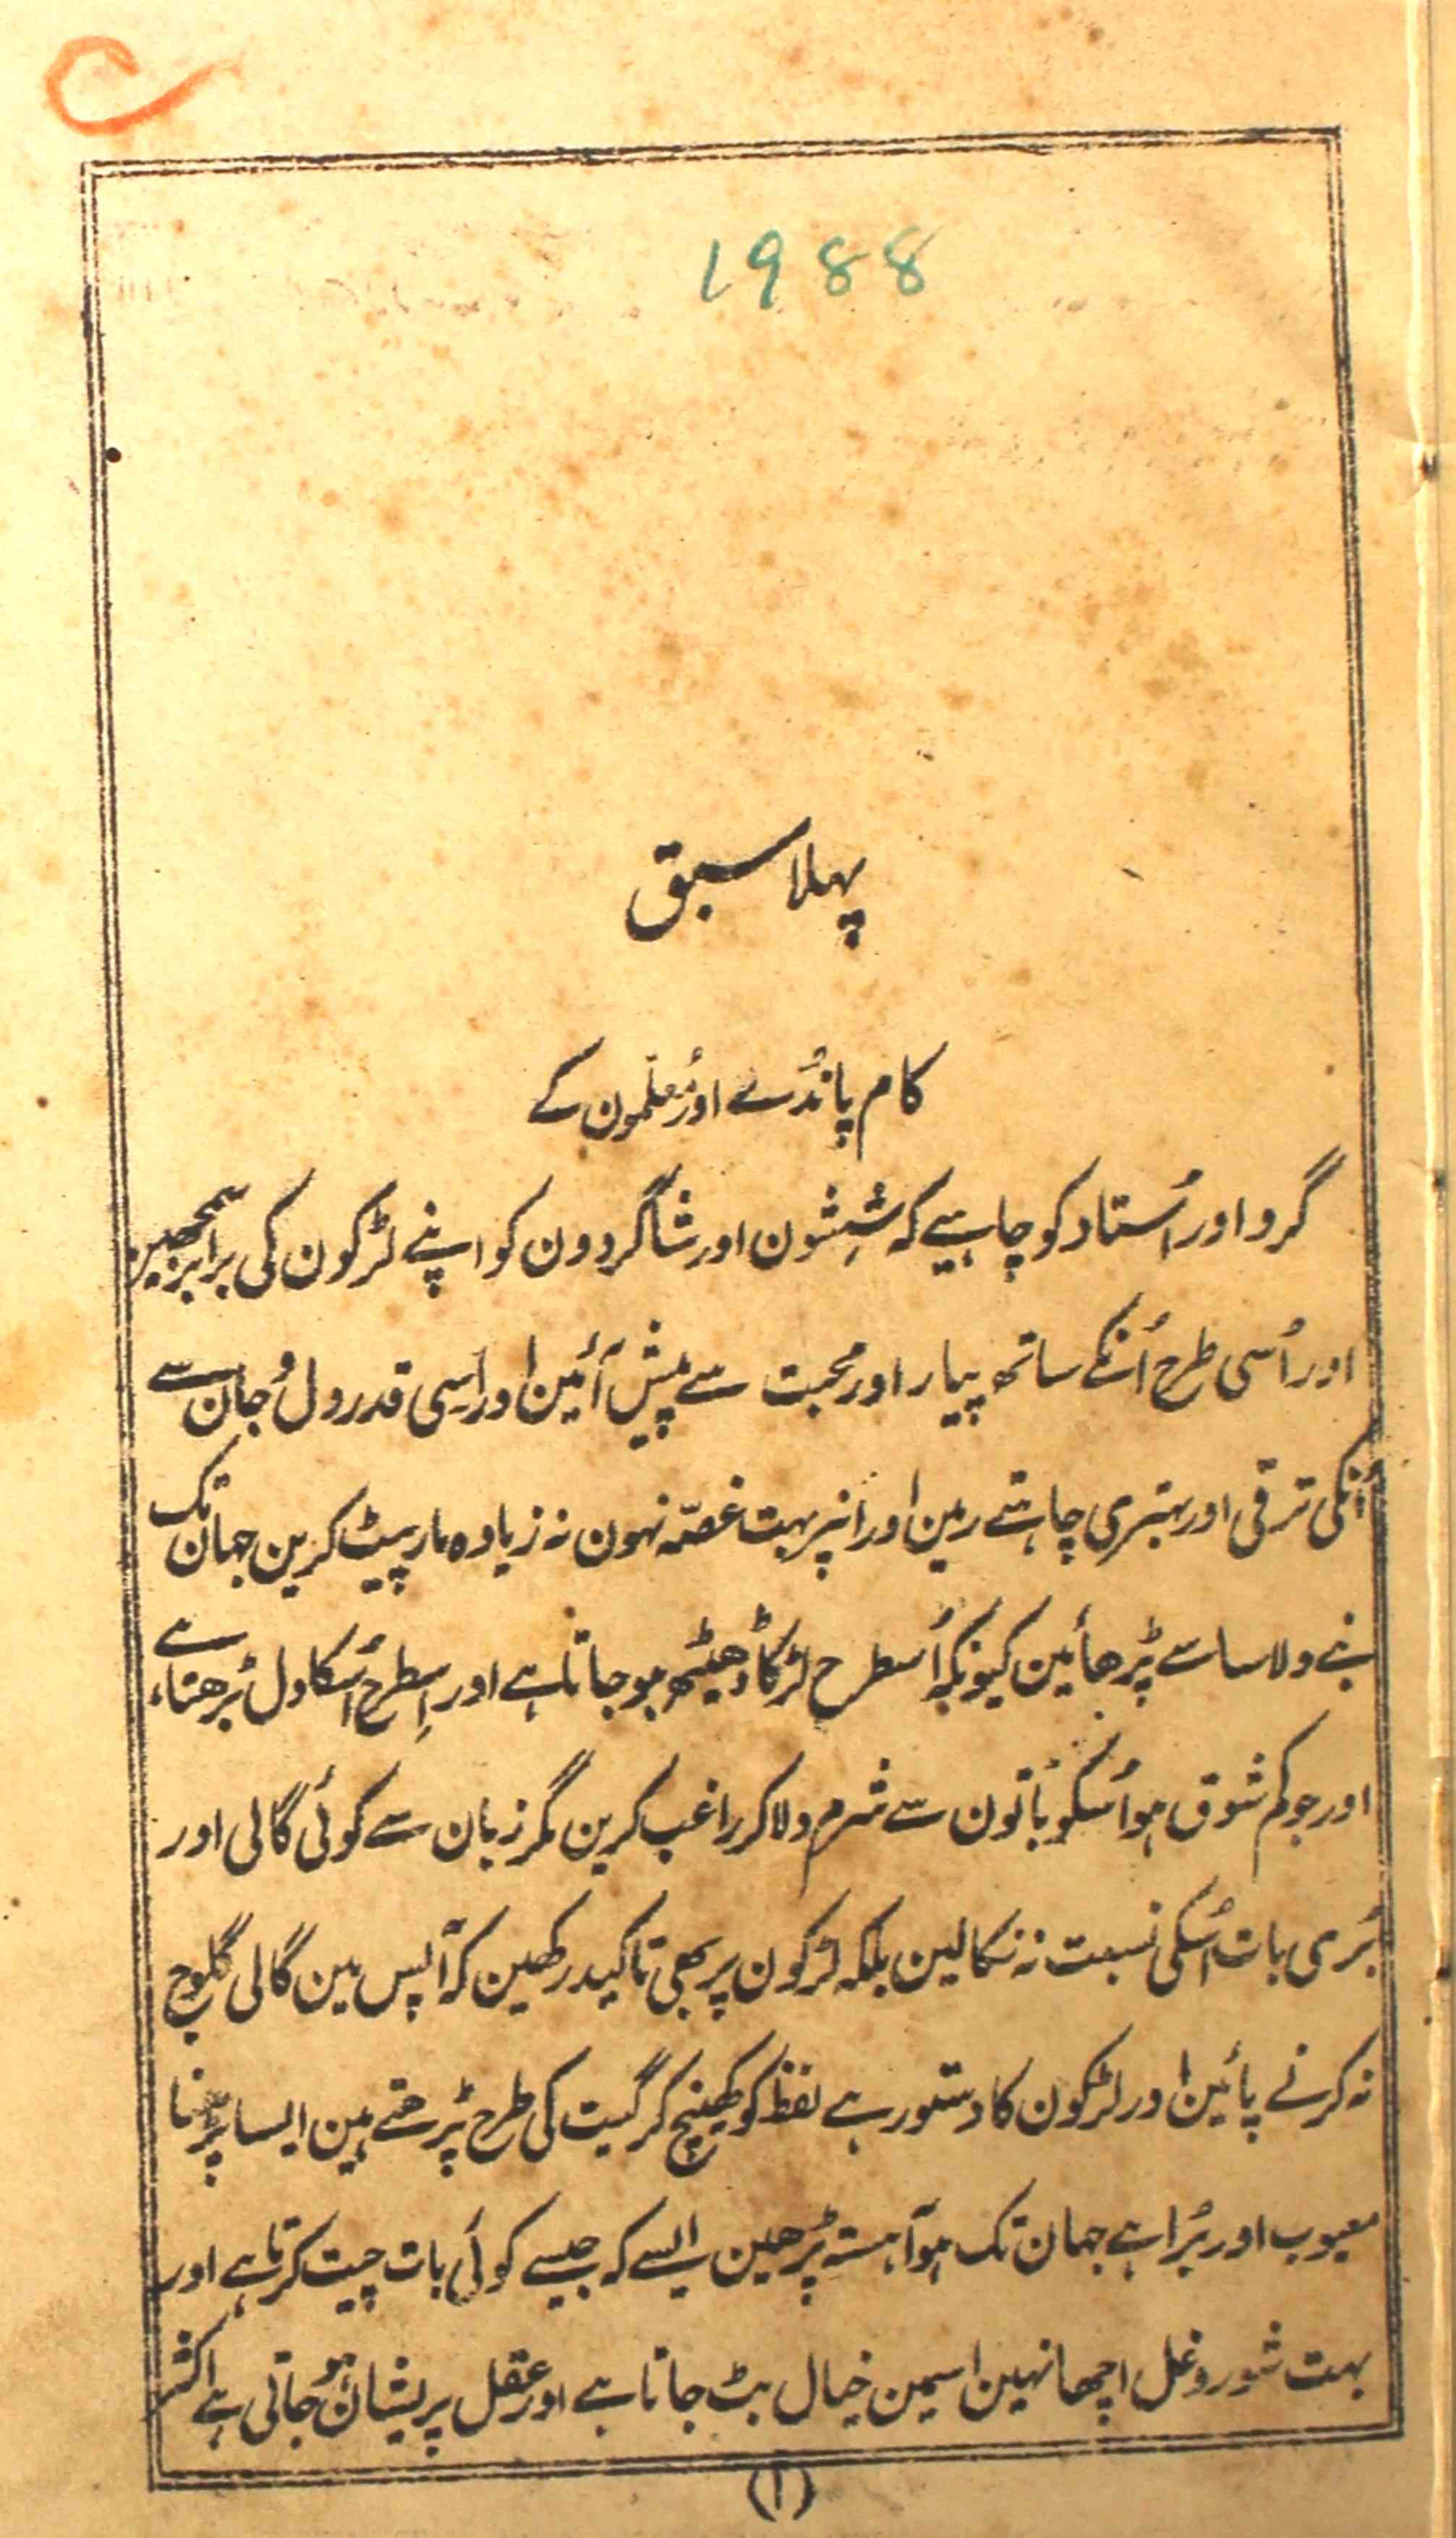 1988
پہلا سبق
کام پانڈے اور معلّمون کے
گرو اور اُستاد کو چاہیے کہ شِشّون اور شاگردون کو اپنے لڑکون کی برابر سمجھین
اور اُسی طرح اُنکے ساتھ پیار اور محبت سے پیش آئین اور اسی قدر دل و جان سے
اُنکی ترقی اور بہتری چاہتے رہین اور انپر بہت غصّہ نہون نہ زیادہ مار پیٹ کرین جہان تک
بنے دلاسا سے پڑھائین کیونکہ اُسطرح لڑکا ڈھیٹھ ہو جاتا ہے اور اِسطرح اُسکا دل بڑھتا ہے
اور جو کم شوق ہو اُسکو باتون سے شرم دلا کر راغب کرین مگر زبان سے کوئی گالی اور
بُری بات اُسکی نسبت نہ نکالین بلکہ لڑکون پر بھی تاکید رکھین کہ آپس مین گالی گلوچ
نہ کرنے پائین اور لڑکون کا دستور ہے لفظ کو کھینچ کر گیت کی طرح پڑھتے ہین ایسا پڑھنا
معیوب اور بُرا ہے جہان تک ہو آہستہ پڑھین ایسے کہ جیسے کوئی بات چیت کرتا ہے اور
بہت شور و غل اچھا نہین اسمین خیال بٹ جاتا ہے اور عقل پریشان ہو جاتی ہے اکثر
(۱)